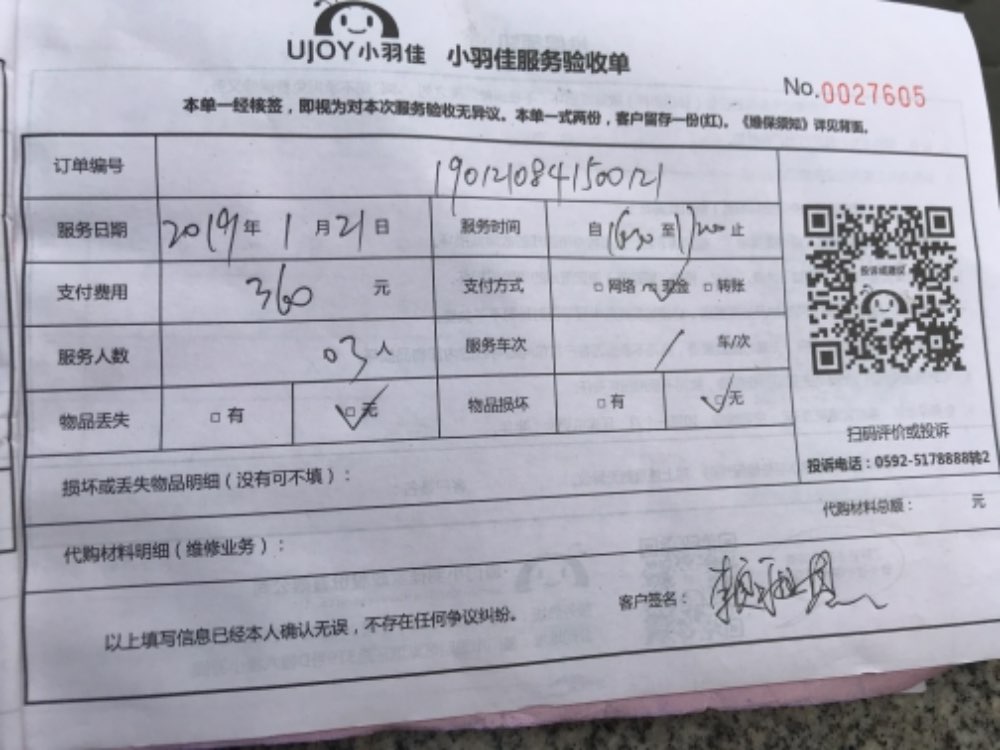 UJOY小羽佳 小羽佳服务验收单
No.0027605
本单一经核签，即视为对本次服务验收无异议。本单一式两份，客户留存一份(红)。《维保须知》详见背面。
订单编号 1901210841500121
服务日期 2019年1月21日 服务时间 自 至 止
支付费用 360元 支付方式 □网络 □现金 □转账
服务人数 03人 服务车次 / 车/次
物品丢失 □有 □无 物品损坏 □有 □无
投诉或建议
扫码评价或投诉
投诉电话：0592-5178888转2
损坏或丢失物品明细（没有可不填）：
代购材料总额： 元
代购材料明细（维修业务）：
客户签名：
以上填写信息已经本人确认无误，不存在任何争议纠纷。